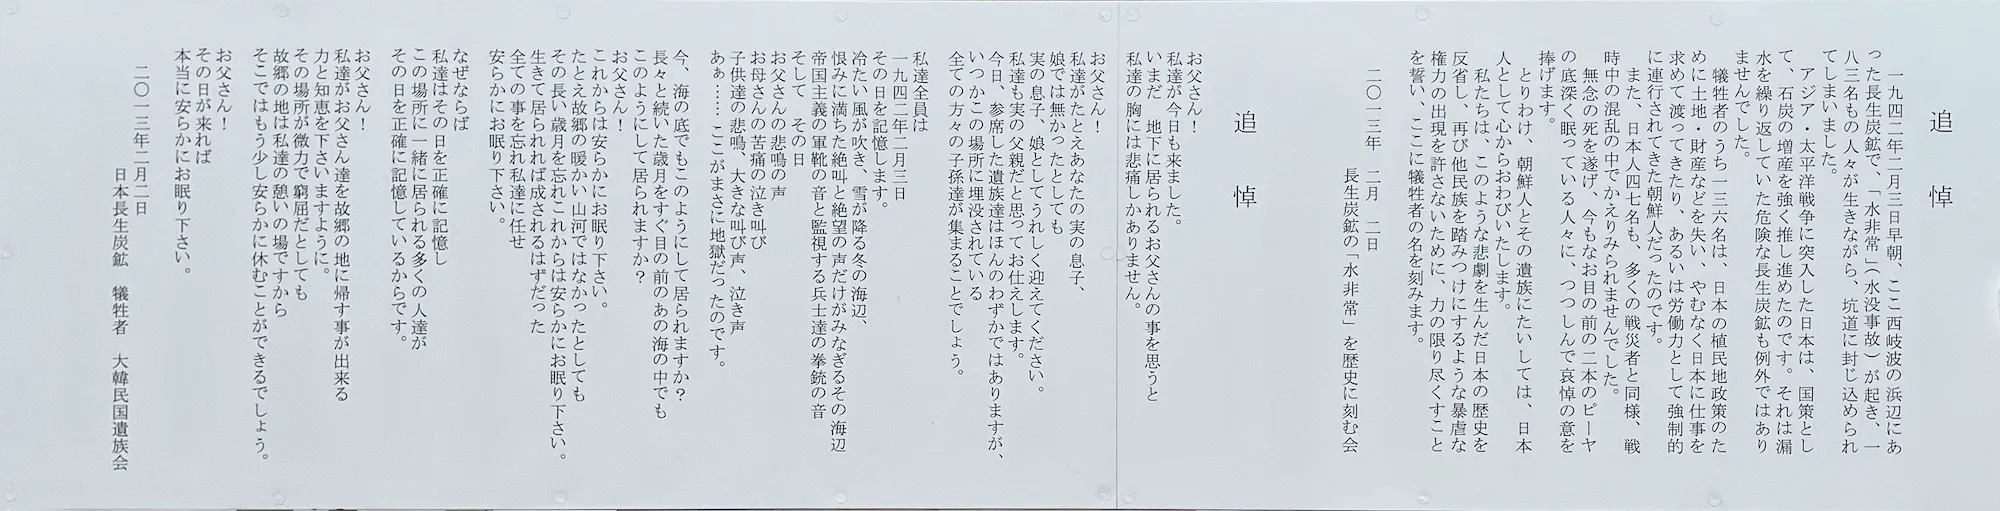 追悼
一九四二年二月三日早朝、ここ西岐波の浜辺にあ
った長生炭鉱で、「水非常」(水没事故)が起き、一
八三名もの人々が生きながら、坑道に封じ込められ
てしまいました。
アジア・太平洋戦争に突入した日本は、国策とし
て、石炭の増産を強く推し進めたのです。それは漏
水を繰り返していた危険な長生炭鉱も例外ではあり
ませんでした。
犠牲者のうち一三六名は、日本の植民地政策のた
めに土地・財産などを失い、やむなく日本に仕事を
求めて渡ってきたり、あるいは労働力として強制的
に連行されてきた朝鮮人だったのです。
また、日本人四七名も、多くの戦災者と同様、戦
時中の混乱の中でかえりみられませんでした。
無念の死を遂げ、今もなお目の前の二本のピーヤ
の底深く眠っている人々に、つつしんで哀悼の意を
捧げます。
とりわけ、朝鮮人とその遺族にたいしては、日本
人として心からおわびいたします。
私たちは、このような悲劇を生んだ日本の歴史を
反省し、再び他民族を踏みつけにするような暴虐な
権力の出現を許さないために、力の限り尽くすこと
を誓い、ここに犠牲者の名を刻みます。
二〇一三年 二月 二日
長生炭鉱の「水非常」を歴史に刻む会
追悼
お父さん!
私達が今日も来ました。
いまだ 地下に居られるお父さんの事を思うと
私達の胸には悲痛しかありません。
お父さん!
私達がたとえあなたの実の息子、
娘では無かったとしても
実の息子、娘としてうれしく迎えてください。
私達も実の父親だと思ってお仕えします。
今日、参席した遺族達はほんのわずかではありますが、
いつかこの場所に埋没されている
全ての方々の子孫達が集まることでしょう。
私達全員は
一九四二年二月三日
その日を記憶します。
冷たい風が吹き、雪が降る冬の海辺、
恨みに満ちた絶叫と絶望の声だけがみなぎるその海辺
帝国主義の軍靴の音と監視する兵士達の拳銃の音
そして その日
お父さんの悲鳴の声
お母さんの苦痛の泣き叫び
子供達の悲鳴、大きな叫び声、泣き声
あぁ…… ここがまさに地獄だったのです。
今、海の底でもこのようにして居られますか?
長々と続いた歳月をすぐ目の前のあの海の中でも
このようにして居られますか?
お父さん!
これからは安らかにお眠り下さい。
たとえ故郷の暖かい山河ではなかったとしても
その長い歳月を忘れこれからは安らかにお眠り下さい。
生きて居られれば成されるはずだった
全ての事を忘れ私達に任せ
安らかにお眠り下さい。
なぜならば
私達はその日を正確に記憶し
この場所に一緒に居られる多くの人達が
その日を正確に記憶しているからです。
お父さん!
私達がお父さん達を故郷の地に帰す事が出来る
力と知恵を下さいますように。
その場所が微力で窮屈だとしても
故郷の地は私達の憩いの場ですから
そこではもう少し安らかに休むことができるでしょう。
お父さん!
その日が来れば
本当に安らかにお眠り下さい。
二〇一三年二月二日
日本長生炭鉱 犠牲者 大韓民国遺族会